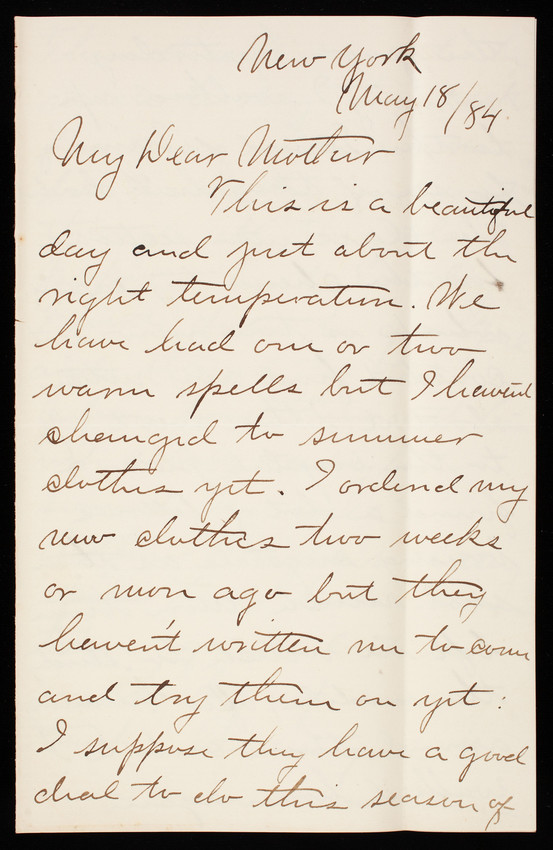 New York
May 18/84
My Dear Mother
This is a beautiful
day and just about the
right temperature. We
have had one or two
warm spells but I havent
changed to summer
clothes yet. I ordered my
new clothes two weeks
or more ago but they
haven't written me to come
and try them on yet:
I suppose they have a good
deal to do this season of